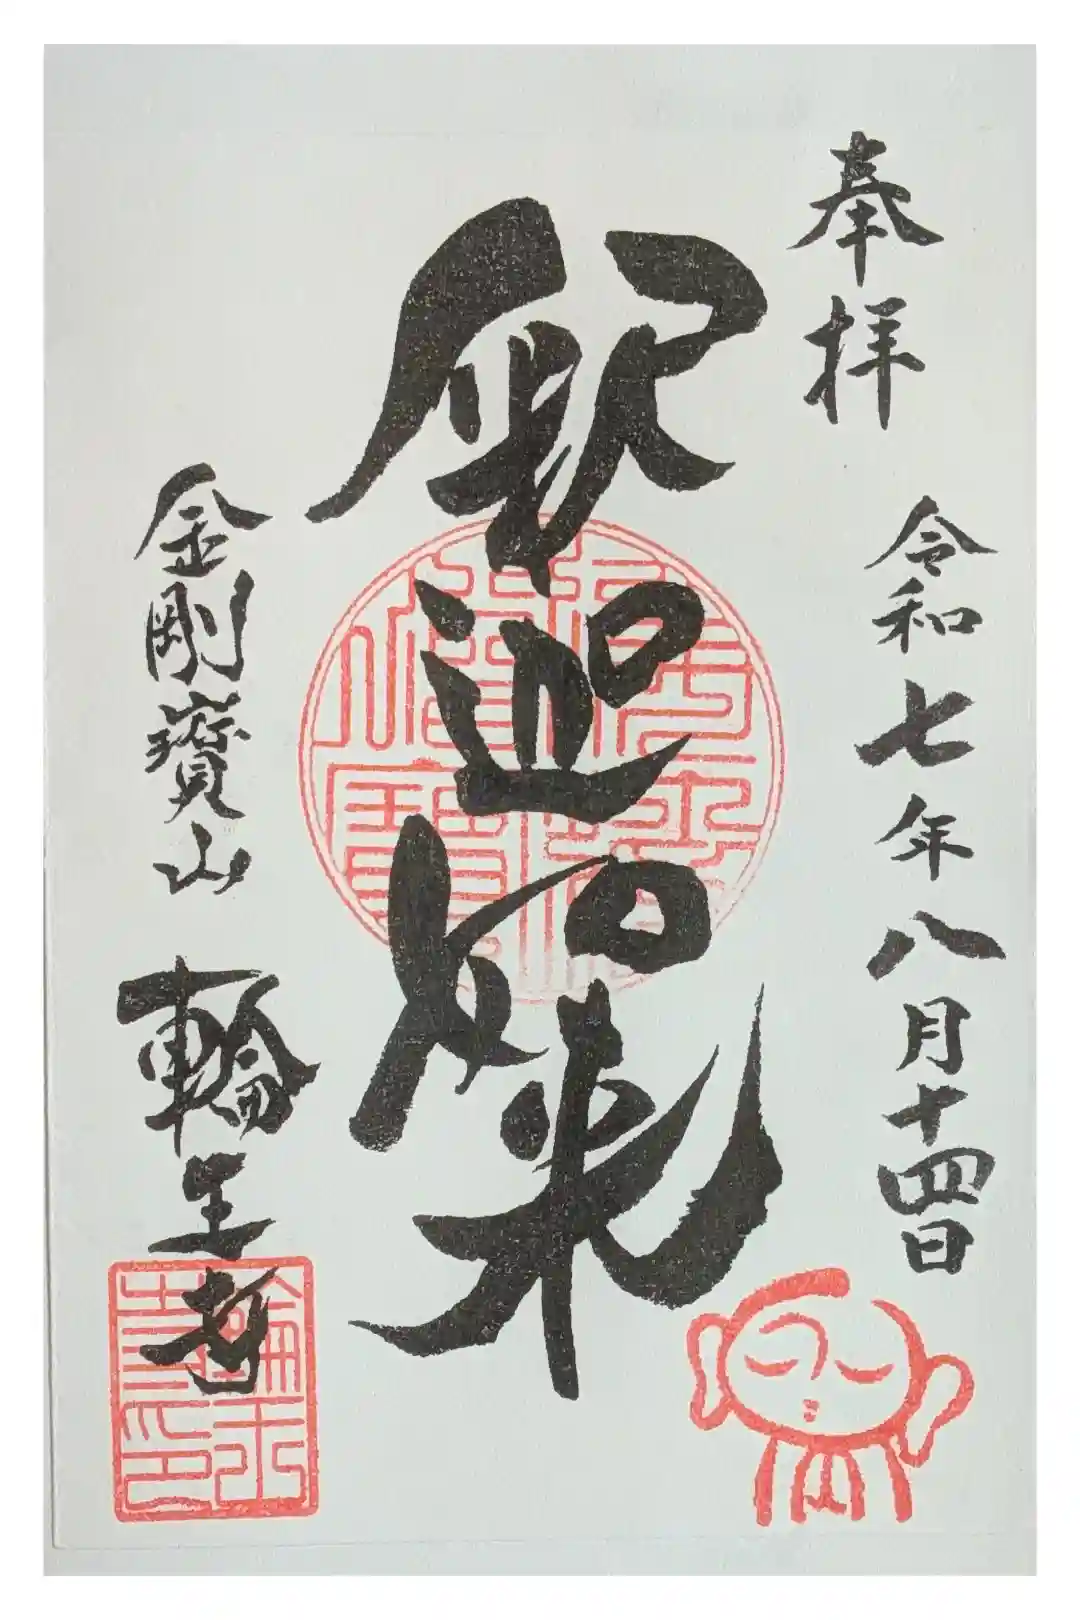 奉拝
令和七年八月十四日
釈迦如来
金剛寶山 輪王寺
輪王寺印